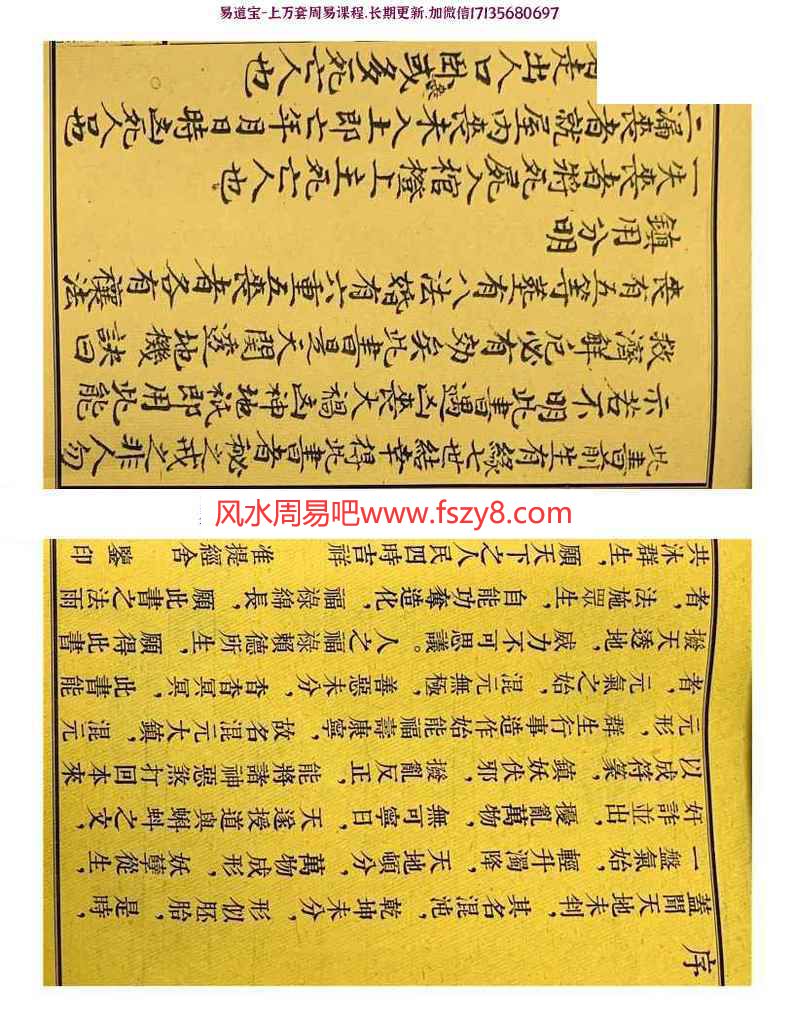 易道宝-上万套周易课程.长期更新.加微信17135680697
此書前生有緣七世結幸得此書者秘之戒之非人勿
示若不明此書遇凶喪大禍凶神地祇即用此能
救濟解厄必有効矣此書是天關透地機訣曰
喪有五等葬有八法婚有六重五喪者各有禳法
鎮用分明
一失喪者將死屍入棺橙上主死亡人也
二漏喪者就屋内喪未入土即亡年月日時凶死人也
走出人口卧或多死亡人也
风水周易吧www.fszy8.com
序
蓋聞天地未判，其名混沌，乾坤未分，形似胚胎，是時，
一盤氣始，輕升濁降，天地頓分，萬物成形，妖孽從生，
奸詐並出，擾亂萬物，無可寧日，天遂授道與蝌之文，
以成符篆，鎮妖伏邪，撥亂反正，能將諸神惡煞打回本來
元形，群生行事造作始能福壽康寧，故名混元大鎮，混元
者，元氣之始，混元無極，善惡未分，杳杳冥冥，此書能
撥天透地，威力不可思議。人之福祿賴德所生，願得此書
者，法施眾生，自能功奪造化，福祿綿長，願此書之法雨
共沐群生，願天下之人民四時吉祥　准提經舍　鑒印